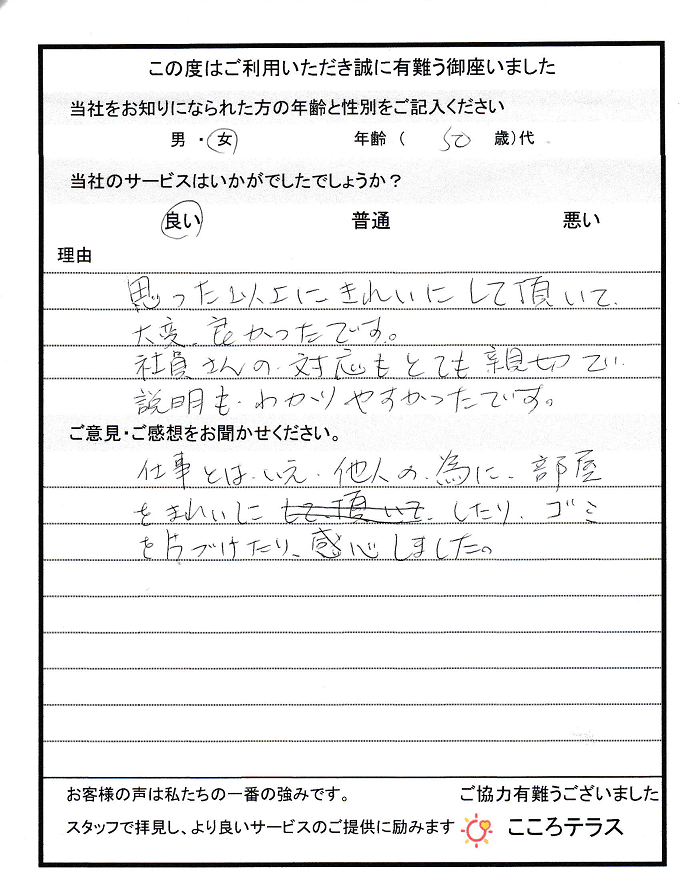 この度はご利用いただき誠に有難う御座いました
当社をお知りになられた方の年齢と性別をご記入ください
男 ・ 女 年齢 ( 50 歳)代
当社のサービスはいかがでしたでしょうか？
良い 普通 悪い
理由
思った以上にきれいにして頂いて、
大変、良かったです。
社員さんの、対応もとても親切で、
説明も、わかりやすかったです。
ご意見・ご感想をお聞かせください。
仕事とは、いえ、他人の、為に、部屋
をきれいに して、頂いて、したり、ゴミ
を片づけたり、感心しました。
お客様の声は私たちの一番の強みです。 ご協力有難うございました
スタッフで拝見し、より良いサービスのご提供に励みます こころテラス